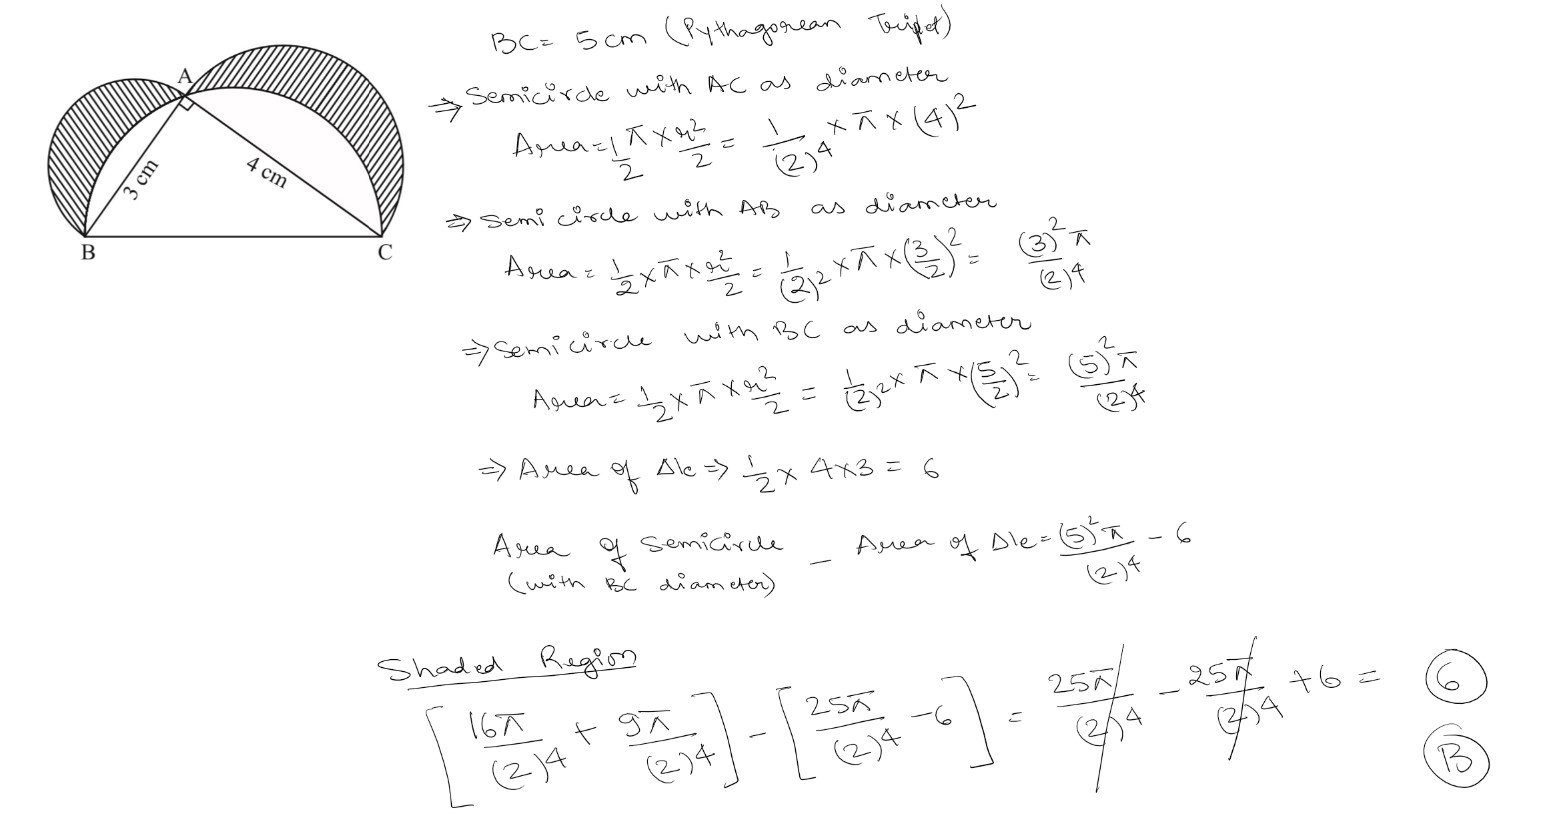 A
3 cm
4 cm
B
C
BC = 5 cm (Pythagorean Triplet)
⇒ Semicircle with AC as diameter
Area = 1/2 π × r²/2 = 1/(2)4 × π × (4)²
⇒ Semi circle with AB as diameter
Area = 1/2 × π × r²/2 = 1/(2)2 × π × (3/2)² = (3)²π/(2)4
⇒ Semi circle with BC as diameter
Area = 1/2 × π × r²/2 = 1/(2)2 × π × (5/2)² = (5)²π/(2)4
⇒ Area of Δle ⇒ 1/2 × 4×3 = 6
Area of semicircle (with BC diameter) – Area of Δle = (5)²π/(2)4 - 6
Shaded Region
[16π/(2)4 + 9π/(2)4] - [25π/(2)4 - 6] = 25π/(2)4 - 25π/(2)4 + 6 = 6
B